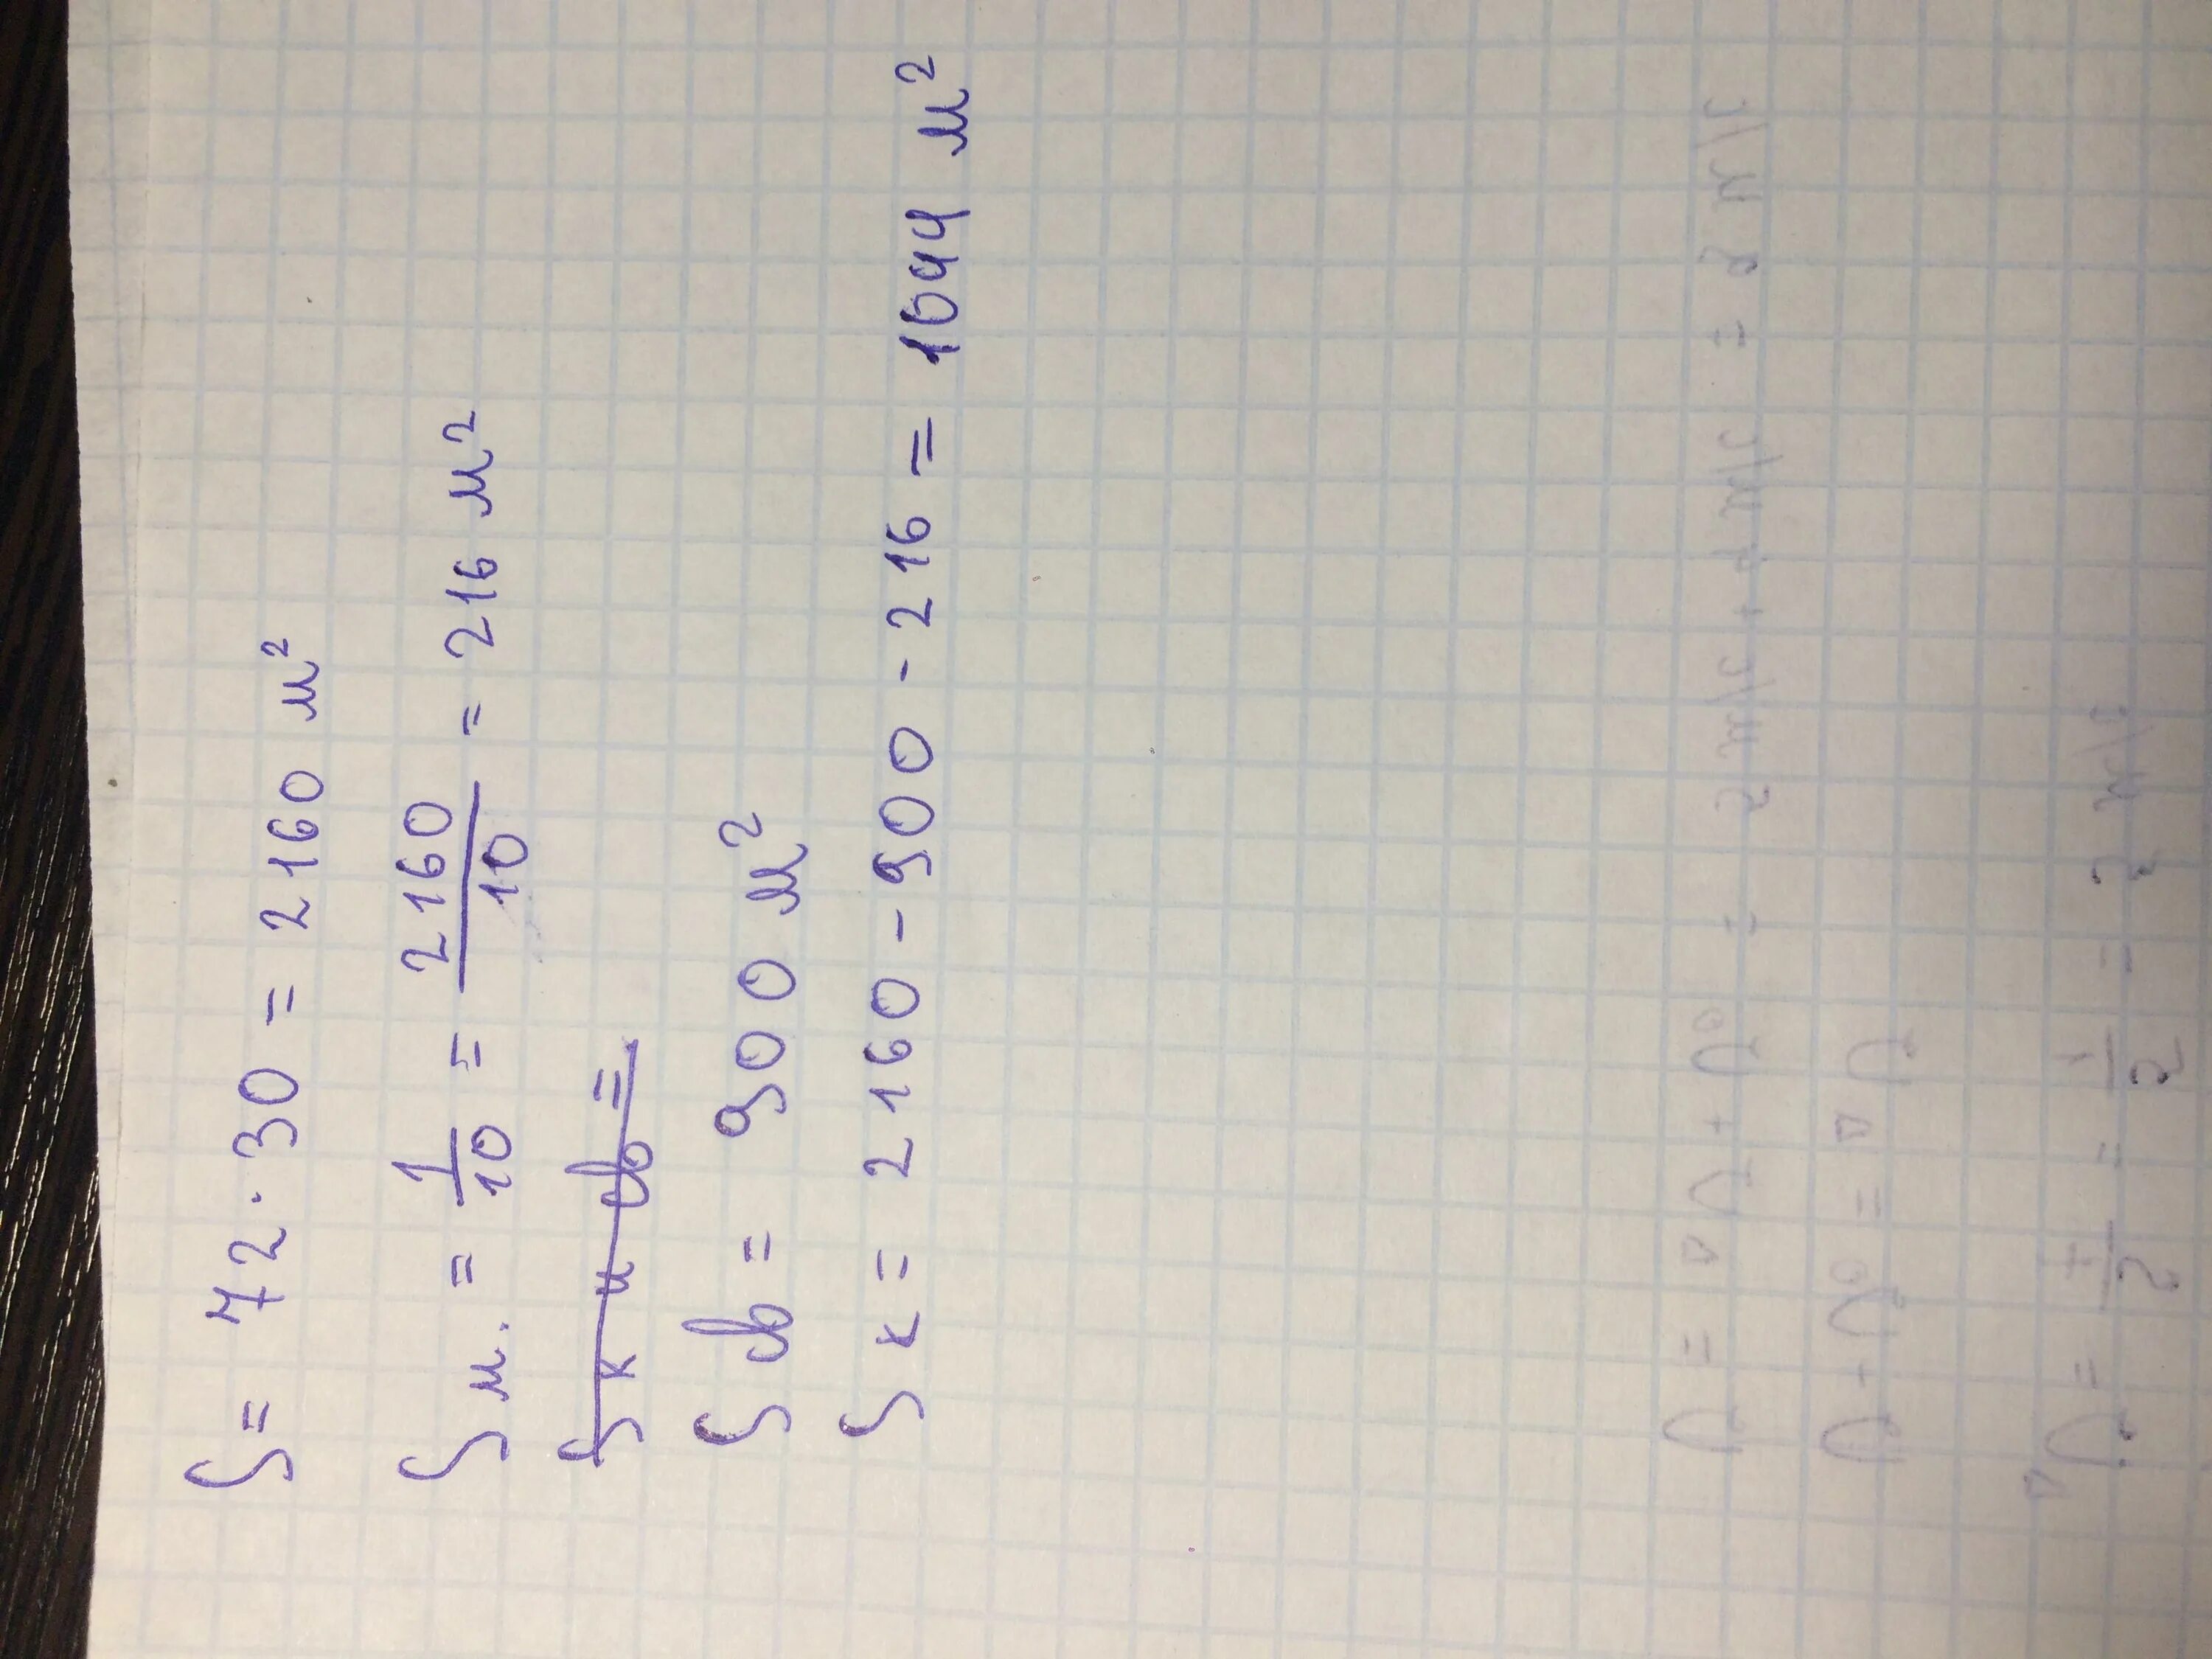 S = 72 · 30 = 2160 м²
S м. = 1/10 = 2160/10 = 216 м²
S к и св =
S св = 900 м²
S к = 2160 - 900 - 216 = 1044 м²